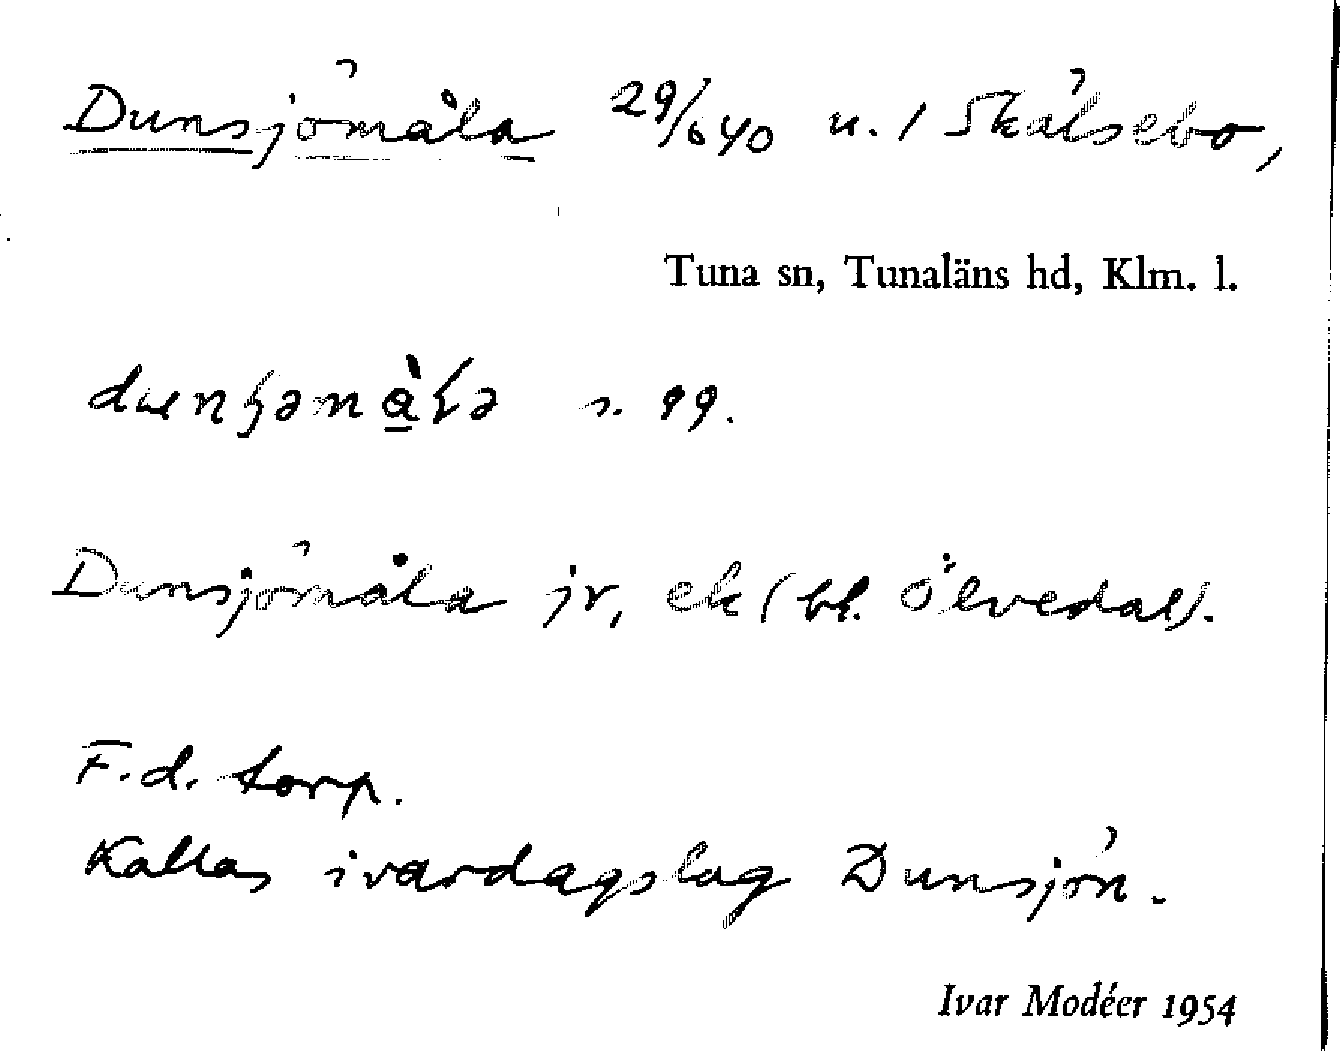 Dunsjömåla 29/6 40 u. / Skälsebo,
Tuna sn, Tunaläns hd, Klm. l.
s. 99.
Dunsjömåla jr, ek (bl. Ölvedal).
F.d. torp.
Kallas i vardagslag Dunsjön.
Ivar Modéer 1954